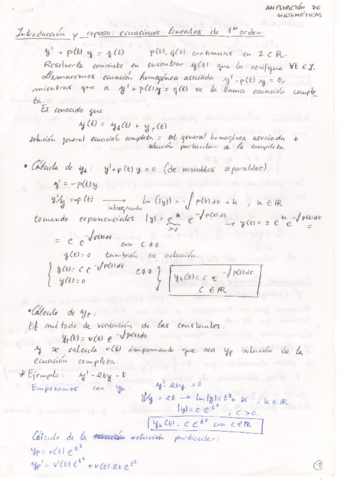 AMPLIACIÓN DE
MATEMÁTICAS
Introducción y repaso: ecuaciones lineales de 1er orden.
y' + p(t) y = q(t)    p(t), q(t) continuas en I ⊂ ℝ.
Resolverla consiste en encontrar y(t) que la verifique ∀t ∈ I.
Llamaremos ecuación homogénea asociada y' - p(t) y = 0,
mientras que a y' + p(t) y = q(t) se la llama ecuación comple
ta.
Es conocido que
y(t) = yh(t) + yp(t)
solución general ecuación completa = sol general homogénea asociada +
solución particular de la completa.
• Cálculo de yh: y' + p(t) y = 0 (de variables separables)
y' = -p(t) y
y'/y = -p(t) → integrando ln(|y|) = -∫p(t)dt + k, k ∈ ℝ
tomando exponenciales |y| = e^k e^-∫p(t)dt → y(t) = ± e^k e^-∫p(t)dt =
= C e^-∫p(t)dt con C ≠ 0.
y(t) = 0 también es solución.
{ y(t) = C e^-∫p(t)dt C ≠ 0 }
{ y(t) = 0 }
yh(t) = C e^-∫p(t)dt
C ∈ ℝ
• Cálculo de yp:
El método de variación de las constantes.
yp(t) = v(t) e^-∫p(t)dt
y se calcula v(t) imponiendo que sea yp solución de la
ecuación completa.
* Ejemplo: y' - 2ty = t
Empezamos con yh y' - 2ty = 0
y'/y = 2t → ln|y| = t² + K, k ∈ ℝ.
|y| = c e^t², c > 0.
yh(t) = C e^t² con C ∈ ℝ
Cálculo de la solución particular:
yp = v(t) e^t²
yp' = v'(t) e^t² + v(t) 2t e^t²
1